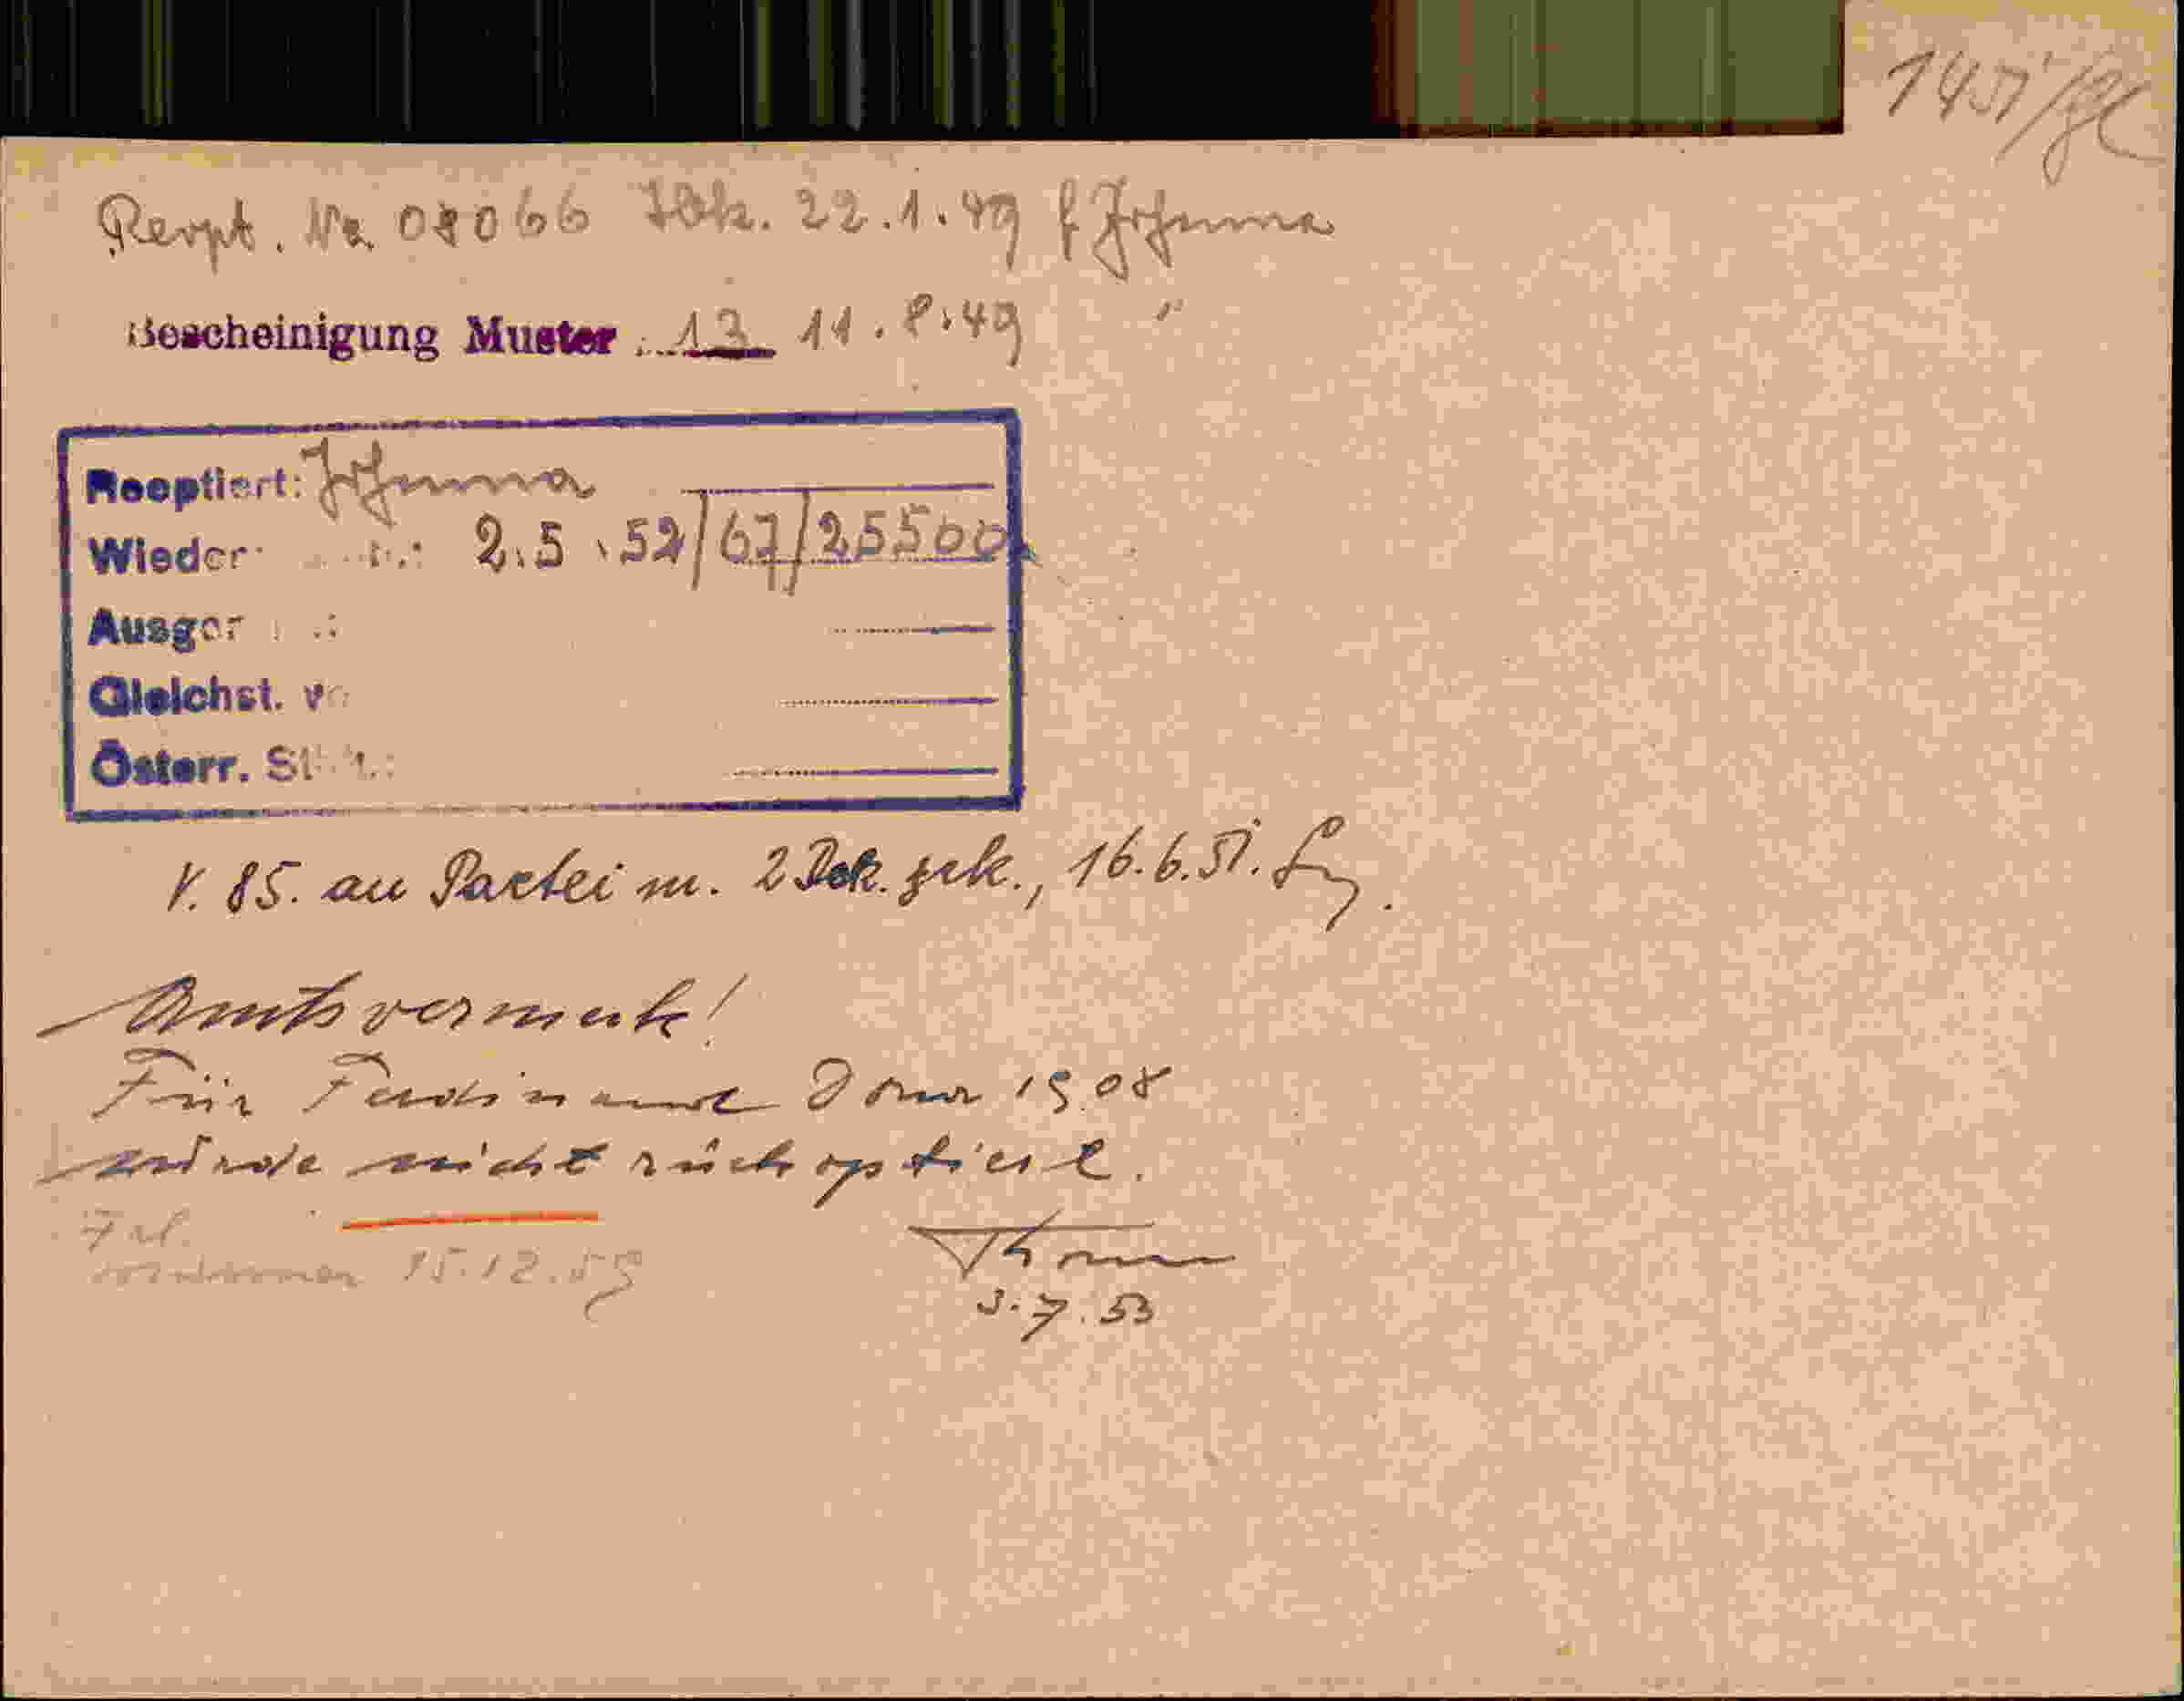 Reopt. Nr. 08066 Ibk. 22.1.49 f Johanna
Bescheinigung Muster 13 11.8.49 "
Reoptiert: Johanna
Wieder 2.5.52/67/25500
Ausger
Gleichst. v
Österr. St
V. 85. an Partei m. 2 Dek. zrk., 16.6.51.
Amtsvermerk!
Für Ferdinand Dona 1908
wurde nicht rückoptiert.
15.12.59
Thoma
3.7.53